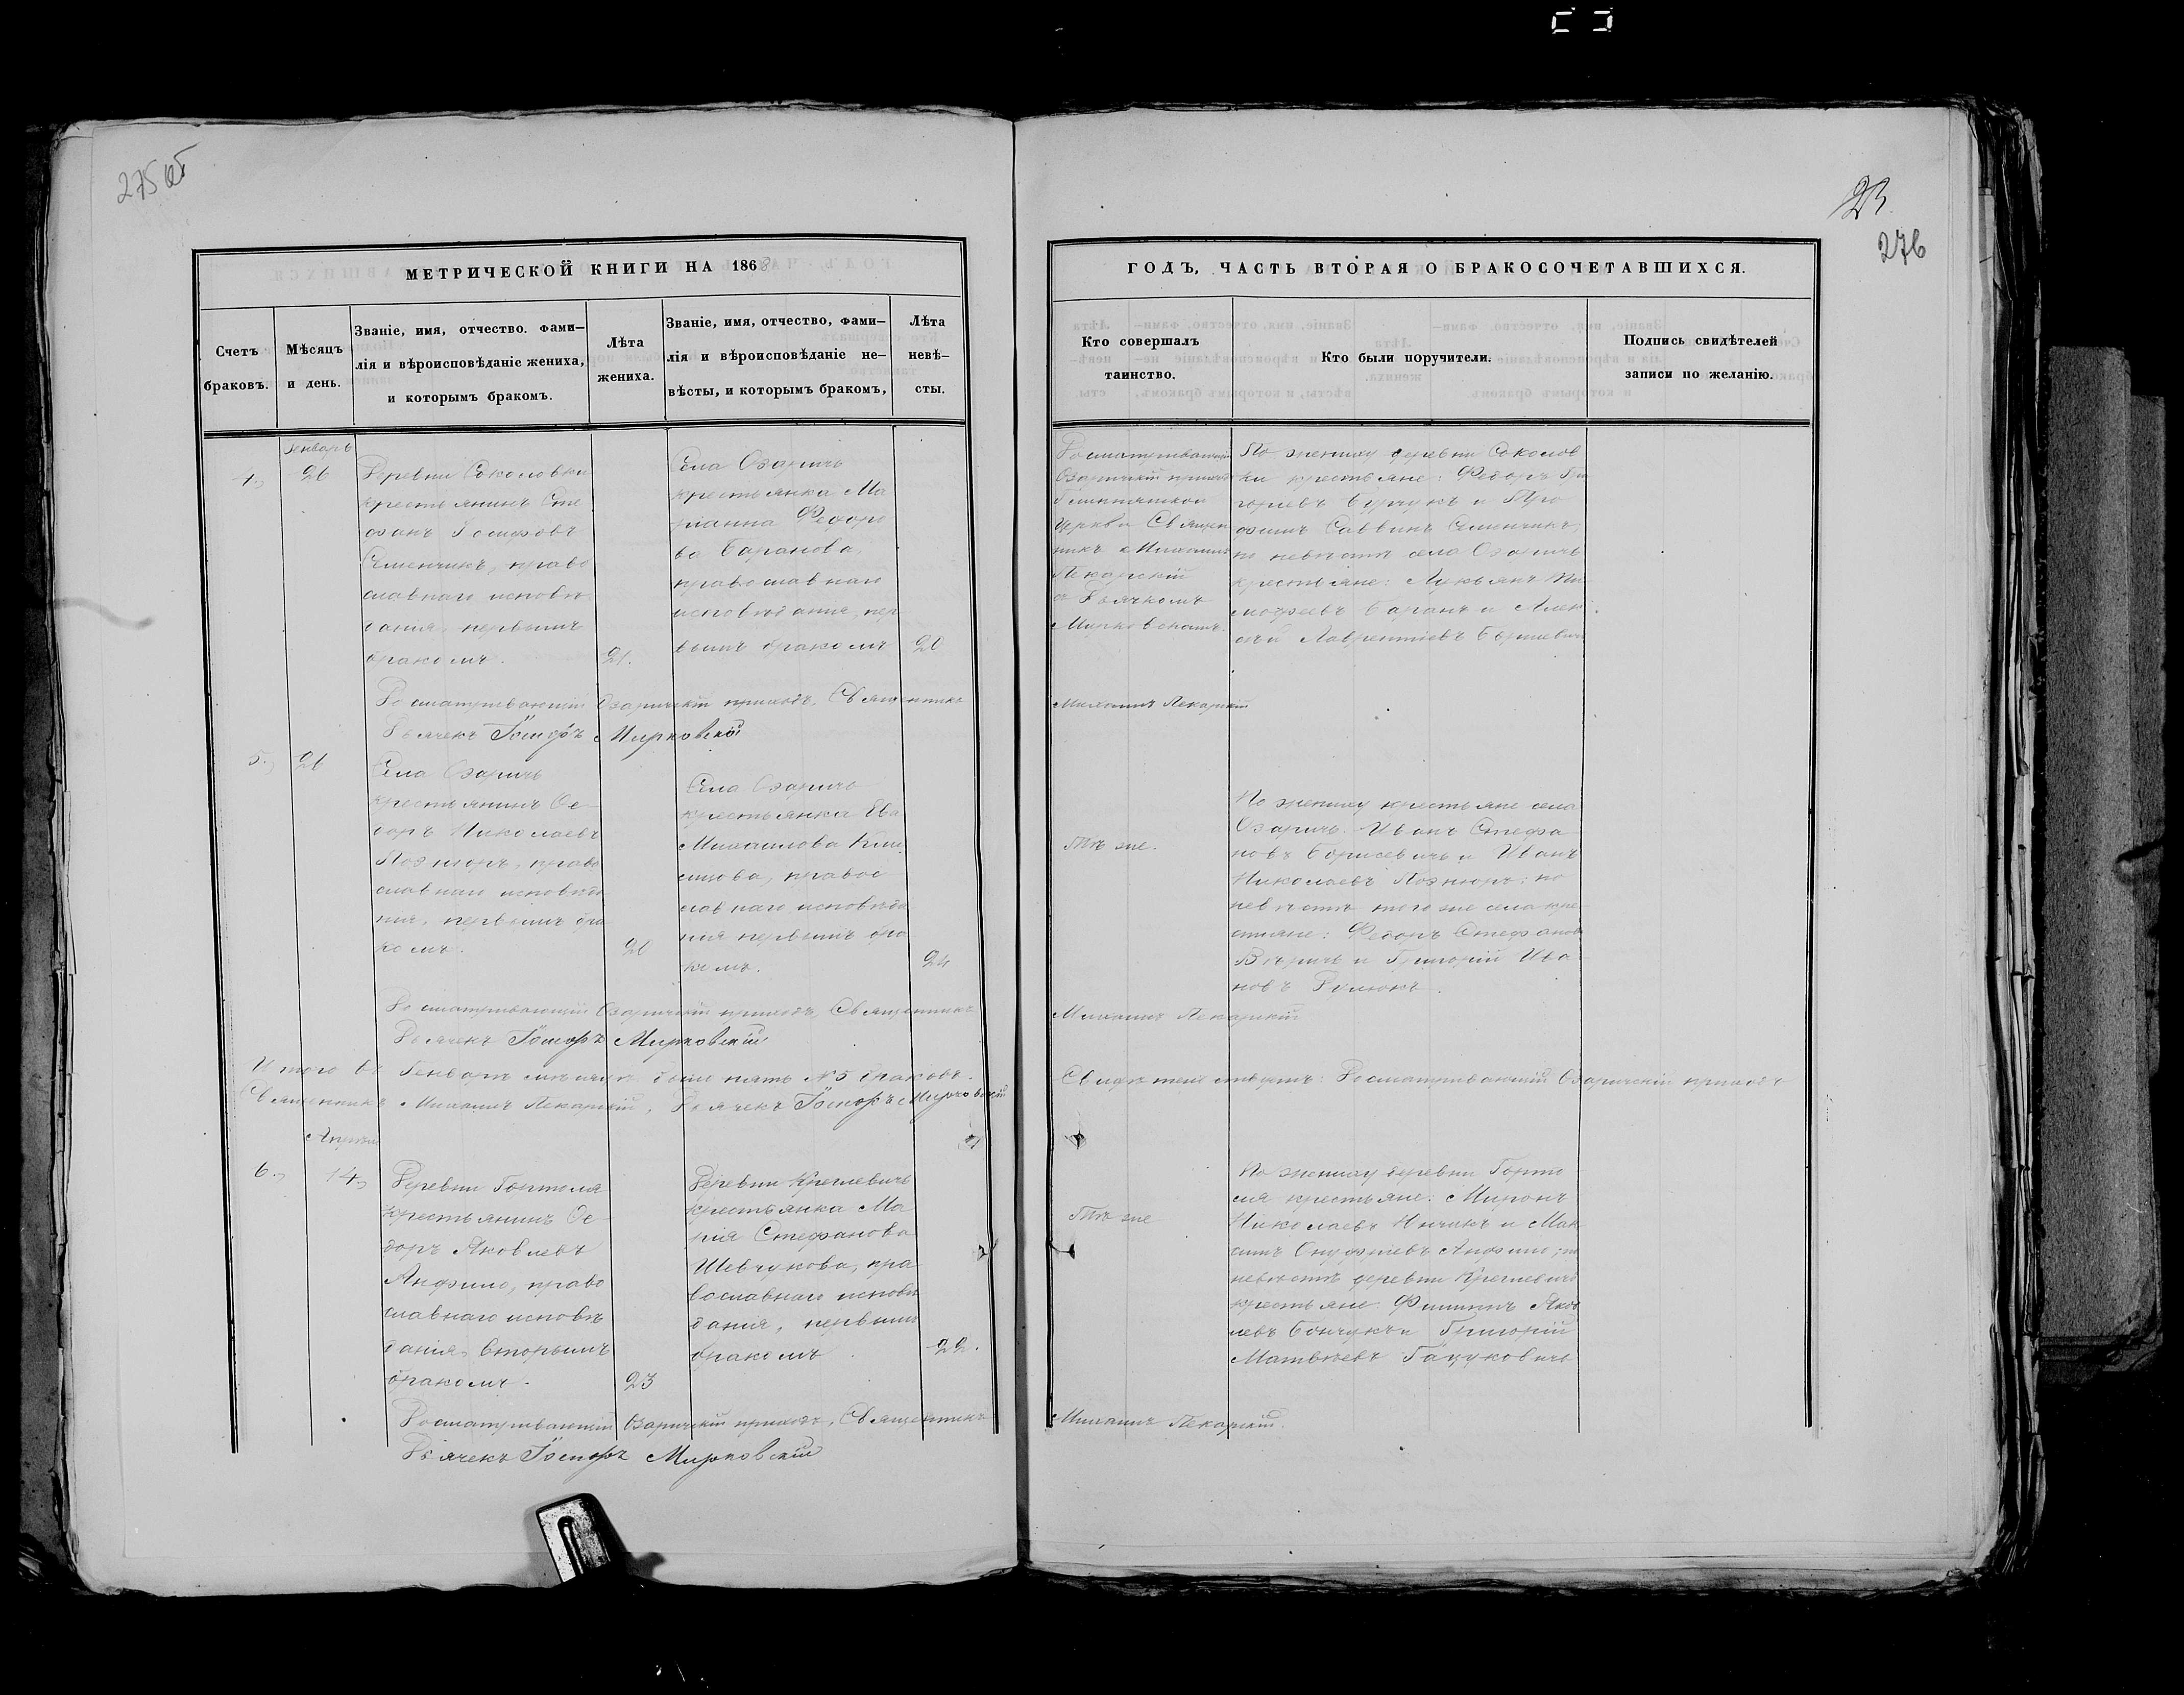 275 об
23
276
МЕТРИЧЕСКОЙ КНИГИ НА 1868
Счетъ браковъ.
Мѣсяцъ и день.
Званіе, имя, отчество. фами–
лія и вѣроисповѣданіе жениха,
и которымъ бракомъ.
Лѣта жениха.
Званіе, имя, отчество, фами–
лія и вѣроисповѣданіе не–
вѣсты, и которымъ бракомъ,
Лѣта
невѣ–
сты.
Генварь
4.,
26
Деревни Соколовки
крестьянинъ Сте
фанъ Іосифовъ
Семенчикъ, право
славнаго исповѣ
данія, первымъ
бракомъ.
21.
Села Озаричъ
крестьянка Ма
ріанна Федоро
ва Баранова,
православнаго
исповѣданія, пер
вымъ бракомъ
20
Озаричскій приходъ, Священникъ
Дьячекъ Іосифъ Мирковскій
5.,
21
Села Озаричъ
крестьянинъ Ѳе
доръ Николаевъ
право
славнаго исповѣда
нія, первымъ бра
комъ.
20
Села Озаричъ
крестьянка Ева
Михаилова
правос
лавнаго исповѣда
нія первымъ бра
комъ.
24
Озаричскій приходъ, Священникъ
Дьячекъ Іосифъ Мирковскій
Итого въ Генварѣ мѣсяцѣ было пять №5 браковъ.
Священникъ Михаилъ Пекарскій, Дьячекъ Іосифъ Мирковскій
Апрѣль
6.,
14.,
Деревни Гортоля
крестьянинъ Ѳе
доръ Яковлевъ
Анфило, право
славнаго исповѣ
данія, вторымъ
бракомъ.
23
Деревни Краглевичъ
крестьянка Ма
рія Стефанова
Шевчукова, пра
вославнаго исповѣ
данія, первымъ
бракомъ
22.
Озаричскій приходъ, Священникъ
Дьячекъ Іосифъ Мирковскій
ГОДЪ, ЧАСТЬ ВТОРАЯ О БРАКОСОЧЕТАВШИХСЯ.
Кто совершалъ
таинство.
Кто были поручители.
Подпись свидѣтелей
записи по желанію.
Озаричскій приходъ
Церкви Священ
никъ Михаилъ
Пекарскій
съ Дьячкомъ
Мирковскимъ.
По жениху деревни Соколов
ки крестьяне: Федоръ Гри
горіевъ и Тро
фимъ Саввинъ Семенчикъ;
по невѣстѣ села Озаричъ
крестьяне: Лукьянъ Ти
мофеевъ Баранъ и Алек
сѣй Лаврентіевъ Борисевичъ
Михаилъ Пекарскій
Тѣ же.
По жениху крестьяне села
Озаричъ Иванъ Стефа
новъ Борисевичъ и Иванъ
Николаевъ по
невѣстѣ того же села кре
стьяне: Федоръ Стефановъ
и Григорій Ива
новъ
Михаилъ Пекарскій
Озаричскій приходъ
Тѣ же
По жениху деревни Горто
ля крестьяне: Миронъ
Николаевъ и Мак
симъ Онуфріевъ Анфило; по
невѣстѣ деревни Краглевичъ
крестьяне Филиппъ Яков
левъ Бончукъ и Григорій
Матвѣевъ Гацуковичъ
Михаилъ Пекарскій.